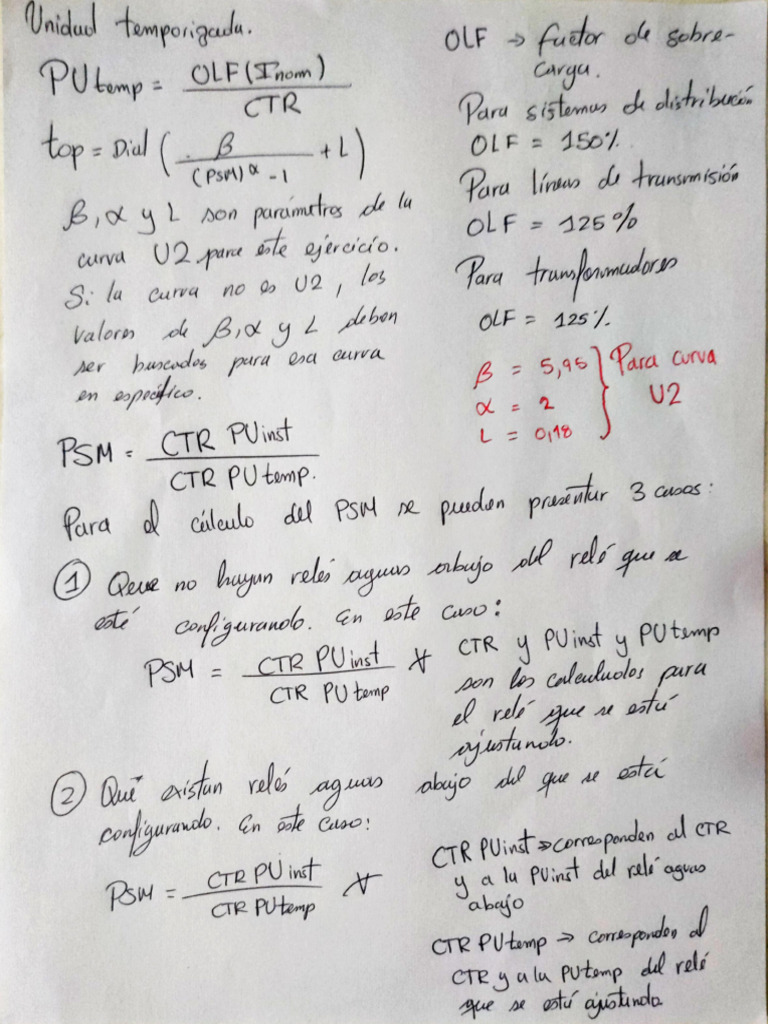 Unidad temporizada.
PU temp = OLF (Inom) / CTR
top = Dial ( β / (PSM)^α - 1 + L )
β, α y L son parámetros de la
curva U2 para este ejercicio.
Si la curva no es U2, los
valores de β, α y L deben
ser buscados para esa curva
en específico.
OLF → factor de sobre-
carga.
Para sistemas de distribución
OLF = 150%.
Para líneas de transmisión
OLF = 125%
Para transformadores
OLF = 125%.
β = 5,95
α = 2
L = 0,18
Para curva
U2
PSM = CTR PUinst / CTR PU temp.
Para el cálculo del PSM se pueden presentar 3 casos:
① Qeue no hayan relés aguas abajo del relé que se
esté configurando. En este caso:
PSM = CTR PUinst / CTR PU temp ∀
CTR y PUinst y PU temp
son los calculados para
el relé que se está
ajustando.
② Que existan relés aguas abajo del que se está
configurando. En este caso:
PSM = CTR PU inst / CTR PU temp ∀
CTR PUinst → corresponden al CTR
y a la PUinst del relé aguas
abajo
CTR PU temp → corresponden al
CTR y a la PU temp del relé
que se está ajustando.